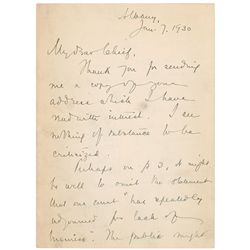 Albany,
Jan. 7, 1930
My dear Chief,
Thank you for sending
me a copy of your
address which I have
read with interest. I see
nothing of substance to be
criticized.
Perhaps on p 3, it might
be well to omit the statement
that our court "has repeatedly
adjourned for lack of
business." The public might